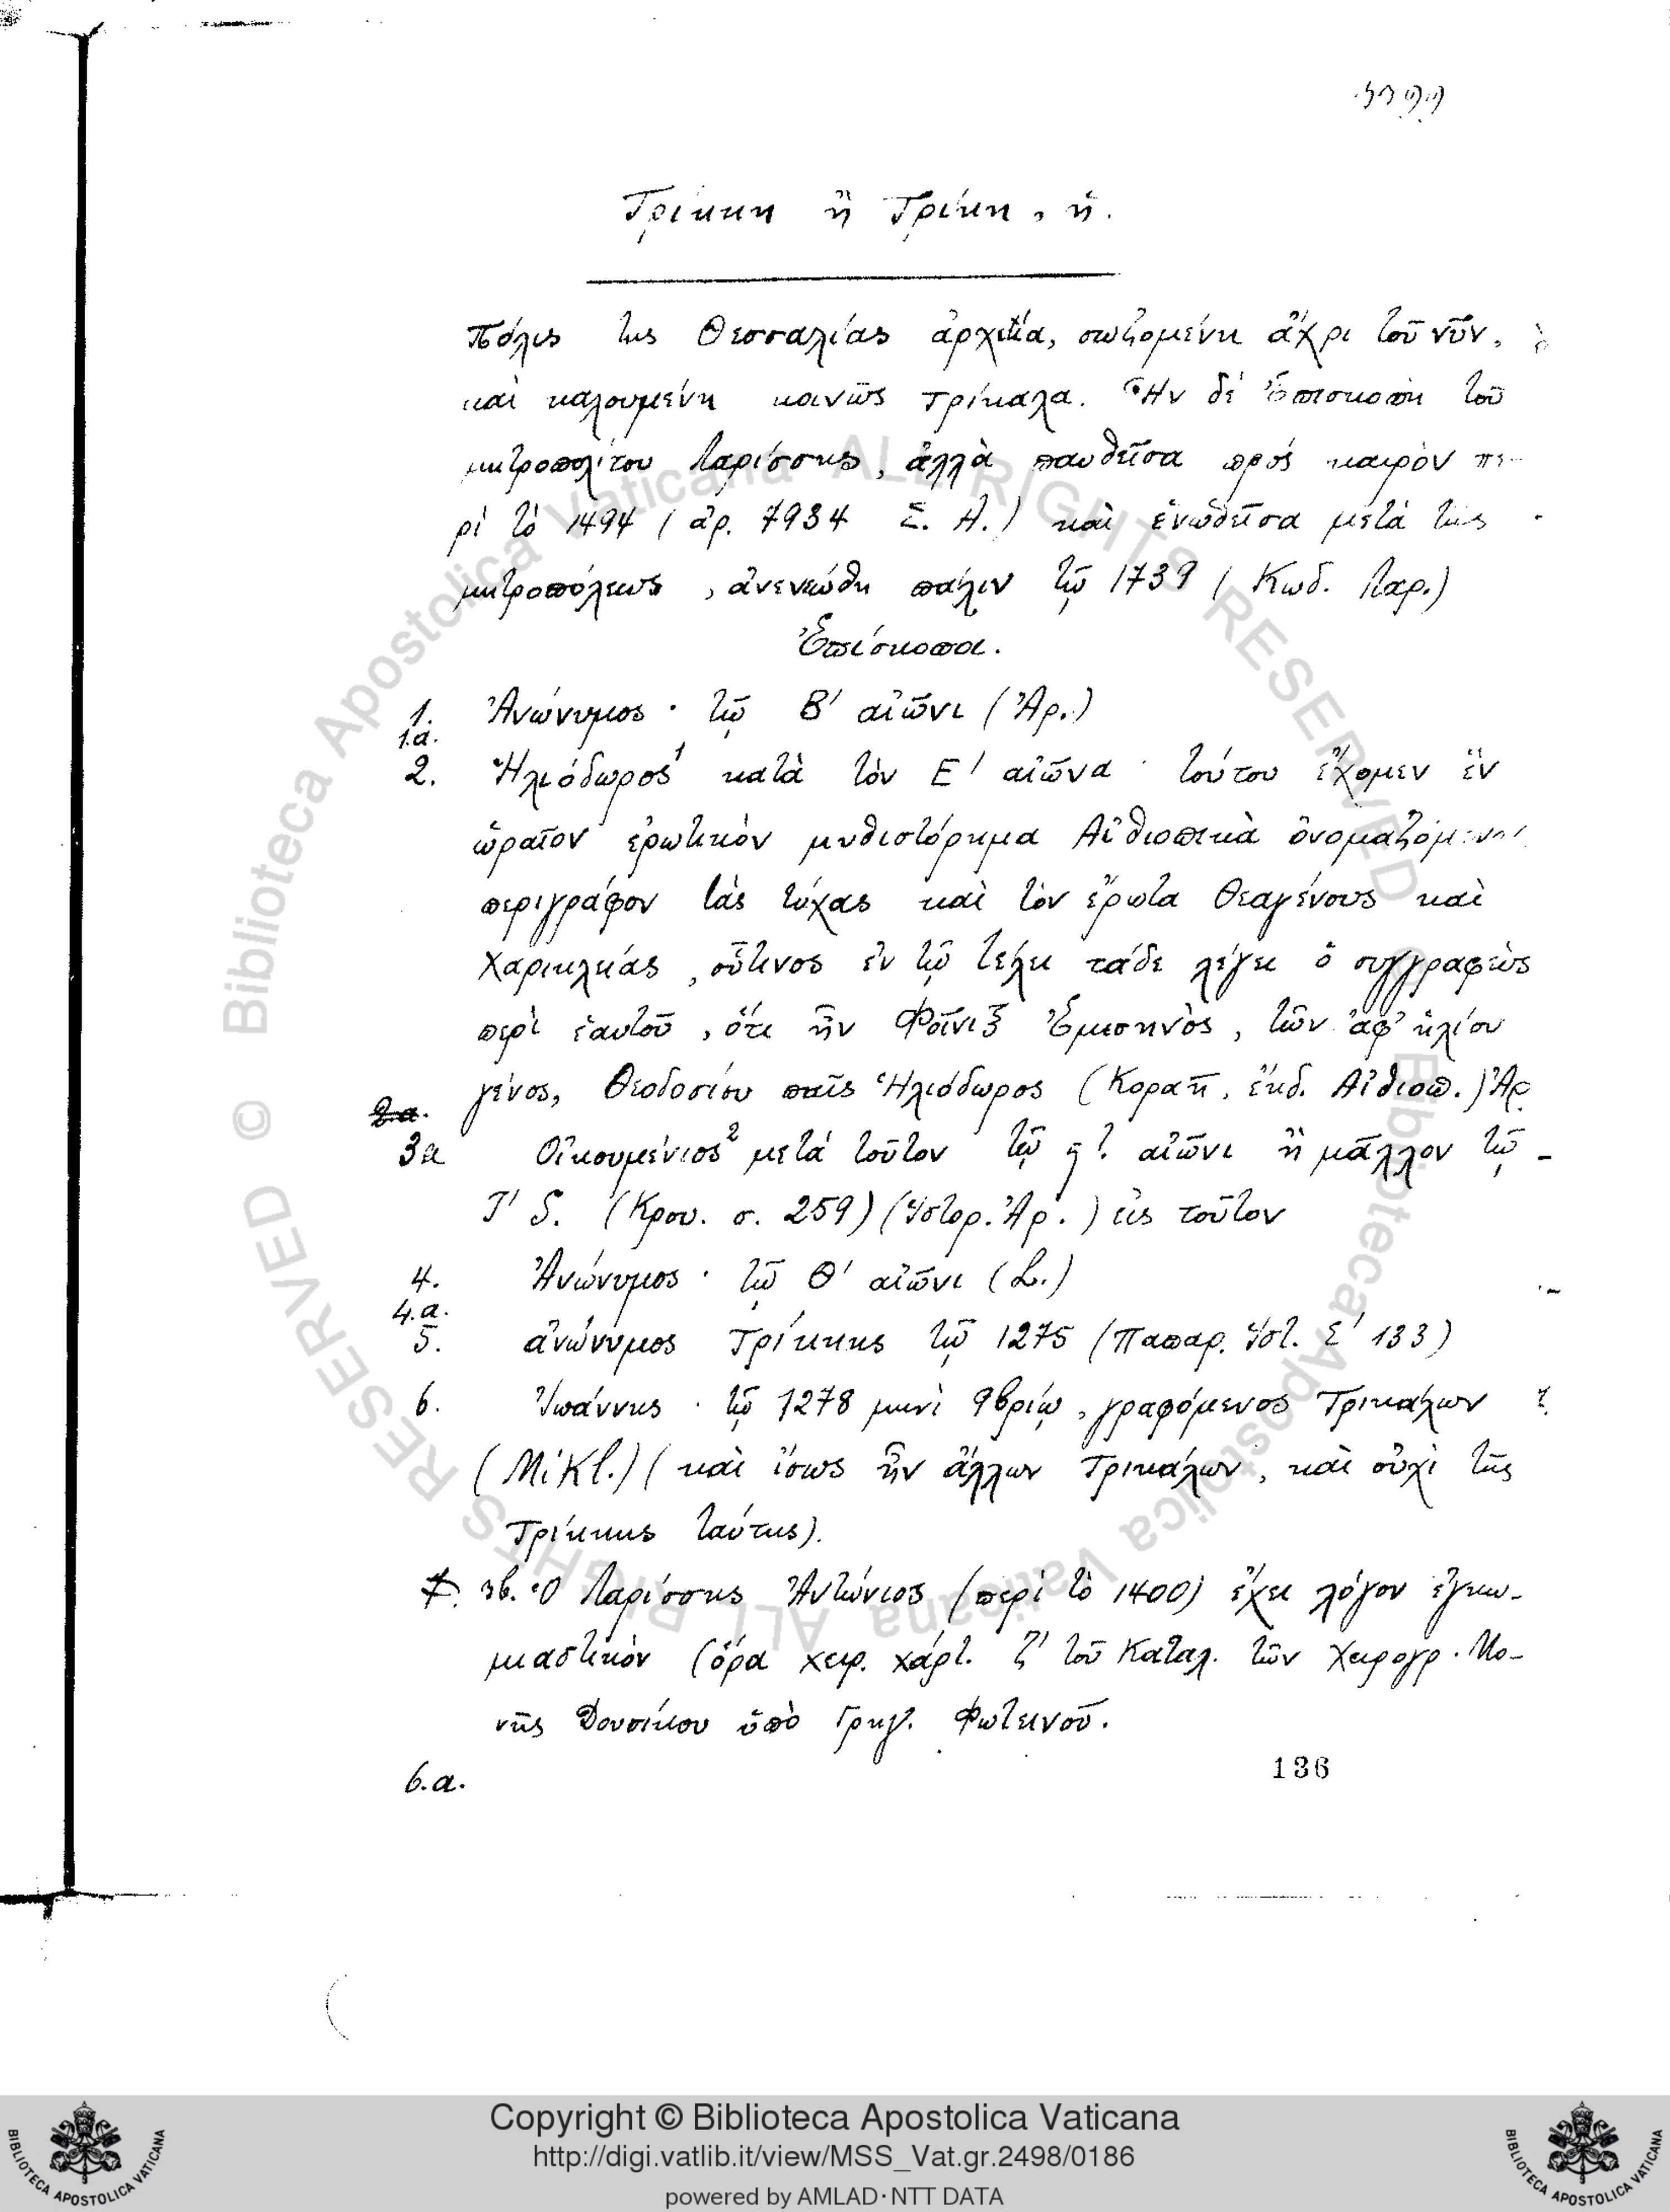 Τρίκκη ἢ Τρίκη, ἡ.
Πόλις της Θεσσαλίας ἀρχαία, σωζομένη ἄχρι τοῦ νῦν,
καὶ καλουμένη κοινῶς Τρίκαλα. Ἦν δέ Ἐπισκοπὴ τοῦ
μητροπολίτου Λαρίσσης, ἀλλὰ παυθεῖσα πρός καιρὸν πε-
ρί τό 1494 (ἀρ. 7934 Σ. Α.) καὶ ἑνωθεῖσα μετά τῆς
μητροπόλεως, ἀνενεώθη πάλιν τῷ 1739 (Κωδ. Λαρ.)
Ἐπίσκοποι.
1. Ἀνώνυμος · τῷ Β' αἰῶνι (Ἀρ.)
1.α.
2. Ἡλιόδωρος¹ κατὰ τόν Ε' αἰῶνα · τούτου ἔχομεν ἓν
ὡραῖον ἐρωτικὸν μυθιστόρημα Αἰθιοπικὰ
περιγράφον τάς τύχας καὶ τόν ἔρωτα Θεαγένους καὶ
Χαρικλείας, οὗτινος ἐν τῷ τέλει τάδε λέγει ὁ συγγραφεὺς
περὶ ἑαυτοῦ, ὅτι ἦν Φοῖνιξ Ἐμισηνὸς, τῶν ἀφ' ἡλίου
γένος, Θεοδοσίου παῖς Ἡλιόδωρος (Κοραῆ, ἔκδ. Αἰθιοπ.) Ἀρ.
2.α.
3α Οἰκουμένιος² μετά τοῦτον τῷ ϛ'. αἰῶνι ἢ μᾶλλον τῷ
Ι' S. (Κρου. σ. 259) (Ἱστορ. Ἀρ.) εἰς τοῦτον
4. Ἀνώνυμος · τῷ Θ' αἰῶνι (L.)
4.α.
5. ἀνώνυμος Τρίκκης τῷ 1275 (Παπαρ. Ἱστ. Ε' 133)
6. Ἰωάννης · τῷ 1278 μηνὶ 9βρίῳ, γραφόμενος Τρικάλων
(Mikl.) (καὶ ἴσως ἦν ἄλλων Τρικάλων, καὶ οὐχὶ τῆς
Τρίκκης ταύτης).
Ὁ Λαρίσσης Ἀντώνιος (περί τὸ 1400) ἔχει λόγον ἐγκω-
μιαστικόν (ὅρα χειρ. χάρτ. ζ' τοῦ Καταλ. τῶν Χειρογρ. Μο-
νῆς Δουσίκου ὑπὸ Γρηγ. Φωτεινοῦ.
6.α.
136
© Biblioteca Apostolica Vaticana ALL RIGHTS RESERVED
© Biblioteca Apostolica Vaticana ALL RIGHTS RESERVED
Copyright © Biblioteca Apostolica Vaticana
http://digi.vatlib.it/view/MSS_Vat.gr.2498/0186
powered by AMLAD·NTT DATA
BIBLIOTECA APOSTOLICA VATICANA
BIBLIOTECA APOSTOLICA VATICANA